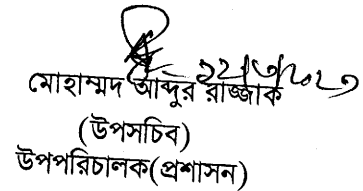 ১২/৩/২০২৩
মোহাম্মদ আব্দুর রাজ্জাক
(উপসচিব)
উপপরিচালক(প্রশাসন)